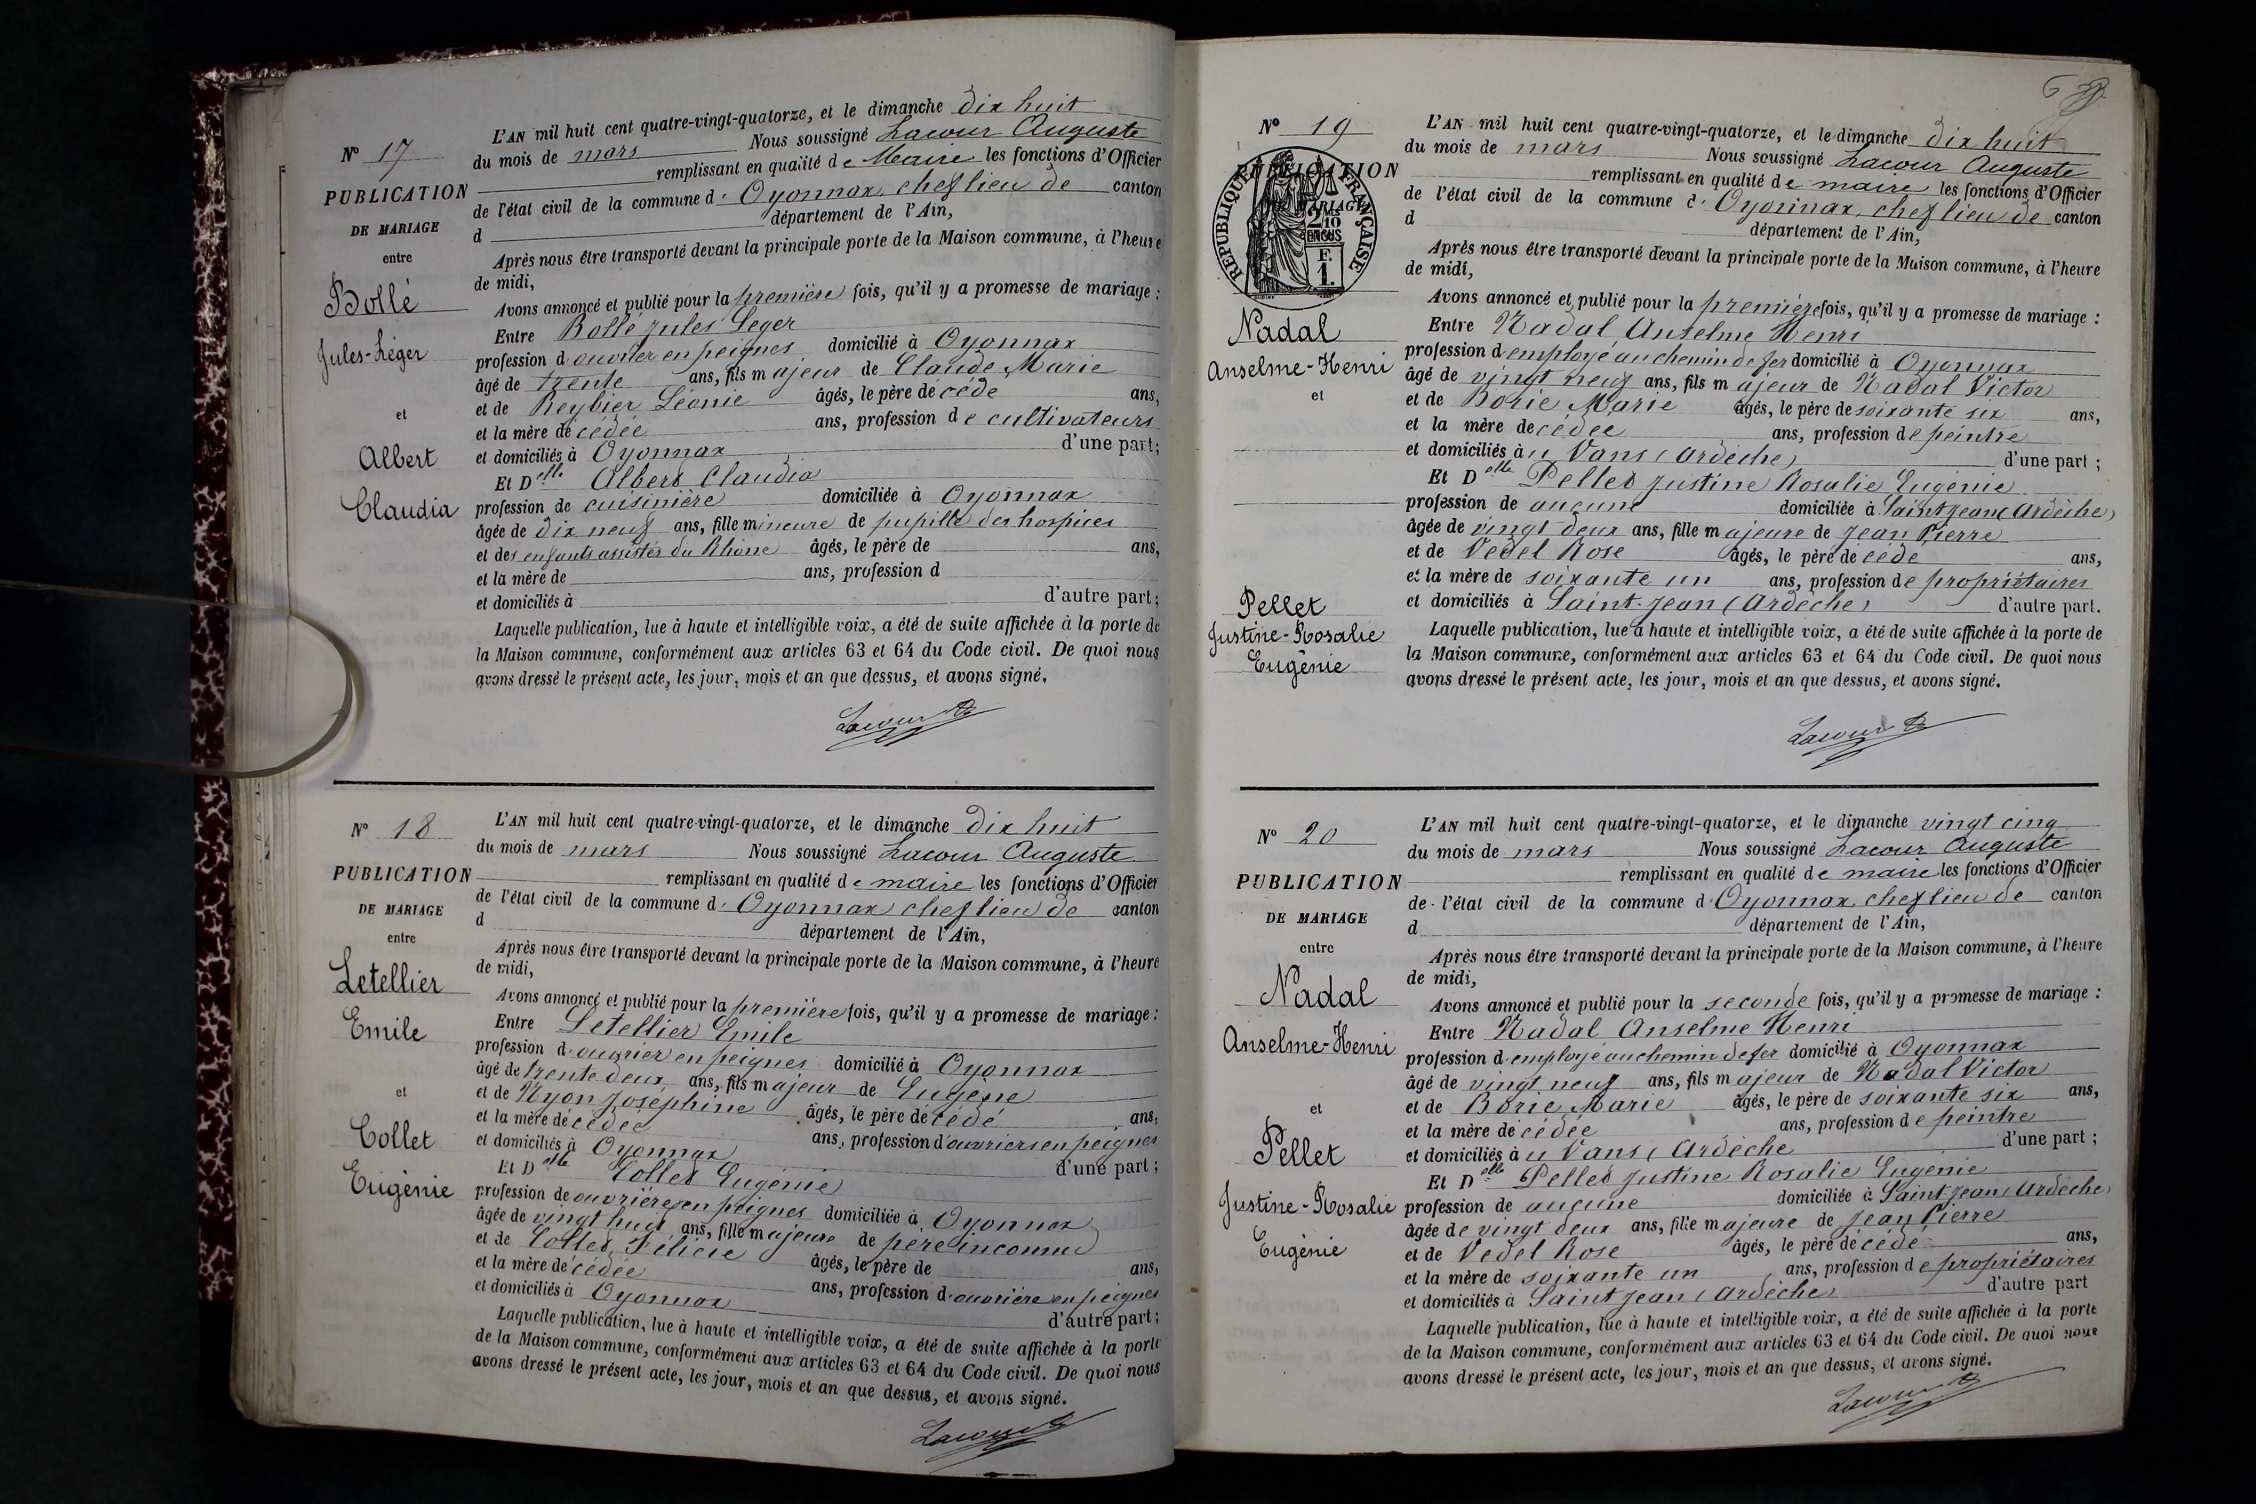 N° 17
PUBLICATION
DE MARIAGE
entre
Bollé
Jules-Léger
et
Albert
Claudia
L'AN mil huit cent quatre-vingt-quatorze, et le dimanche dix huit
du mois de mars Nous soussigné Lacour Auguste
remplissant en qualité de Maire les fonctions d'Officier
de l'état civil de la commune d' Oyonnax, chef lieu de canton
d département de l'Ain,
Après nous être transporté devant la principale porte de la Maison commune, à l'heure
de midi,
Avons annoncé et publié pour la première fois, qu'il y a promesse de mariage :
Entre Bollé Jules Leger
profession d'ouvrier en peignes domicilié à Oyonnax
âgé de trente ans, fils majeur de Claude Marie
et de Reybier Léonie âgés, le père décédé ans,
et la mère décédée ans, profession de cultivateurs
et domiciliés à Oyonnax d'une part;
Et Delle Albert Claudia
profession de cuisinière domiciliée à Oyonnax
âgée de dix neuf ans, fille mineure de pupille des hospices
et des enfants assistés du Rhône âgés, le père de ans,
et la mère de ans, profession d
et domiciliés à d'autre part;
Laquelle publication, lue à haute et intelligible voix, a été de suite affichée à la porte de
la Maison commune, conformément aux articles 63 et 64 du Code civil. De quoi nous
avons dressé le présent acte, les jour, mois et an que dessus, et avons signé.
Lacour A
N° 18
PUBLICATION
DE MARIAGE
entre
Letellier
Emile
et
Collet
Eugènie
L'AN mil huit cent quatre-vingt-quatorze, et le dimanche dix huit
du mois de mars Nous soussigné Lacour Auguste
remplissant en qualité de maire les fonctions d'Officier
de l'état civil de la commune d' Oyonnax chef lieu de canton
d département de l'Ain,
Après nous être transporté devant la principale porte de la Maison commune, à l'heure
de midi,
Avons annoncé et publié pour la première fois, qu'il y a promesse de mariage :
Entre Letellier Emile
profession d'ouvrier en peignes domicilié à Oyonnax
âgé de trente deux ans, fils majeur de Eugène
et de Nyon Joséphine âgés, le père décédé ans,
et la mère décédée ans, profession d'ouvriers en peignes
et domiciliés à Oyonnax d'une part;
Et Delle Collet Eugénie
profession de ouvrière en peignes domiciliée à Oyonnax
âgée de vingt huit ans, fille majeure de père inconnu
et de Collet Félicie âgés, le père de ans,
et la mère décédée ans, profession d'ouvrière en peignes
et domiciliés à Oyonnax d'autre part;
Laquelle publication, lue à haute et intelligible voix, a été de suite affichée à la porte
de la Maison commune, conformément aux articles 63 et 64 du Code civil. De quoi nous
avons dressé le présent acte, les jour, mois et an que dessus, et avons signé.
Lacour A
N° 19
PUBLICATION
DE MARIAGE
RÉPUBLIQUE FRANÇAISE
2/10
EN SUS
F.
1.
Nadal
Anselme-Henri
et
Pellet
Justine-Rosalie
Eugènie
L'AN mil huit cent quatre-vingt-quatorze, et le dimanche dix huit
du mois de mars Nous soussigné Lacour Auguste
remplissant en qualité de maire les fonctions d'Officier
de l'état civil de la commune d' Oyonnax, chef lieu de canton
d département de l'Ain,
Après nous être transporté devant la principale porte de la Maison commune, à l'heure
de midi,
Avons annoncé et publié pour la première fois, qu'il y a promesse de mariage :
Entre Nadal Anselme Henri
profession d'employé au chemin de fer domicilié à Oyonnax
âgé de vingt neuf ans, fils majeur de Nadal Victor
et de Borie Marie âgés, le père de soixante six ans,
et la mère décédée ans, profession de peintre
et domiciliés à u Vans (Ardèche) d'une part ;
Et Delle Pellet Justine Rosalie Eugénie
profession de aucune domiciliée à Saint Jean (Ardèche)
âgée de vingt deux ans, fille majeure de Jean Pierre
et de Vedel Rose âgés, le père décédé ans,
et la mère de soixante un ans, profession de propriétaires
et domiciliés à Saint-Jean (Ardèche) d'autre part.
Laquelle publication, lue à haute et intelligible voix, a été de suite affichée à la porte de
la Maison commune, conformément aux articles 63 et 64 du Code civil. De quoi nous
avons dressé le présent acte, les jour, mois et an que dessus, et avons signé.
Lacour A
N° 20
PUBLICATION
DE MARIAGE
entre
Nadal
Anselme-Henri
et
Pellet
Justine-Rosalie
Eugènie
L'AN mil huit cent quatre-vingt-quatorze, et le dimanche vingt cinq
du mois de mars Nous soussigné Lacour Auguste
remplissant en qualité de maire les fonctions d'Officier
de l'état civil de la commune d' Oyonnax, chef lieu de canton
d département de l'Ain,
Après nous être transporté devant la principale porte de la Maison commune, à l'heure
de midi,
Avons annoncé et publié pour la seconde fois, qu'il y a promesse de mariage :
Entre Nadal Anselme Henri
profession d'employé au chemin de fer domicilié à Oyonnax
âgé de vingt neuf ans, fils majeur de Nadal Victor
et de Borie Marie âgés, le père de soixante six ans,
et la mère décédée ans, profession de peintre
et domiciliés à u Vans (Ardèche d'une part ;
Et Delle Pellet Justine Rosalie Eugénie
profession de aucune domiciliée à Saint Jean (Ardèche)
âgée de vingt deux ans, fille majeure de Jean Pierre
et de Vedel Rose âgés, le père décédé ans,
et la mère de soixante un ans, profession de propriétaires
et domiciliés à Saint Jean (Ardèche) d'autre part
Laquelle publication, lue à haute et intelligible voix, a été de suite affichée à la porte
de la Maison commune, conformément aux articles 63 et 64 du Code civil. De quoi nous
avons dressé le présent acte, les jour, mois et an que dessus, et avons signé.
Lacour A